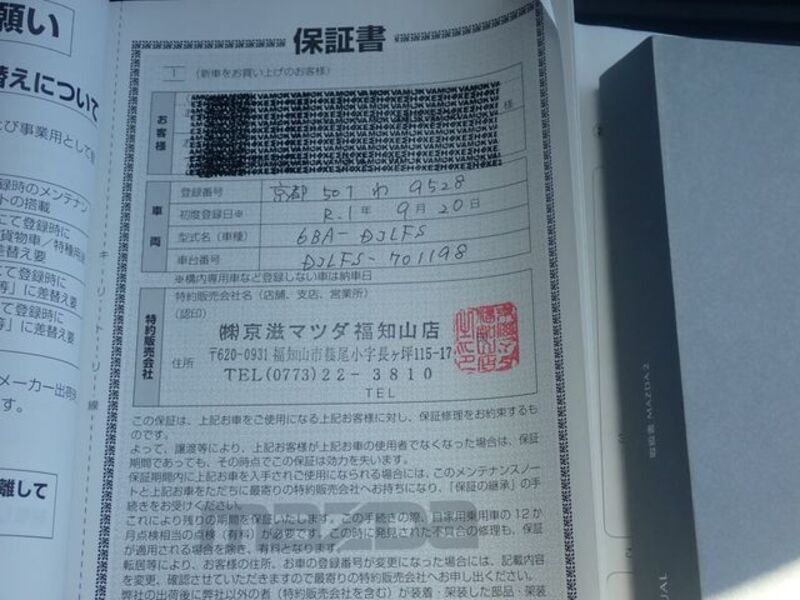 願い
替えについて
び事業用として
録時のメンテナン
トの搭載
にて登録時に
貨物車／特種用途
差替え要
にて登録時に
等」に差替え要
にて登録時に
等」に差替え要
メーカー出荷
す。
離して
キリトリ線
保証書
1 (新車をお買い上げのお客様)
お客様
様
車両
登録番号 京都 501 わ 9528
初度登録日※ R.1年 9月 20日
型式名（車種） 6BA-DJLFS
車台番号 DJLFS-701198
※構内専用車など登録しない車は納車日
特約販売会社
特約販売会社名（店舗、支店、営業所）
（認印）
㈱京滋マツダ福知山店
住所 〒620-0931 福知山市篠尾小字長ヶ坪115-17
TEL(0773)22-3810
TEL
この保証は、上記お車をご使用になる上記お客様に対し、保証修理をお約束するも
のです。
よって、譲渡等により、上記お客様が上記お車の使用者でなくなった場合は、保証
期間であっても、その時点でこの保証は効力を失います。
保証期間内に上記お車を入手されご使用になられる場合には、このメンテナンスノー
トと上記お車をただちに最寄りの特約販売会社へお持ちになり、「保証の継承」の手
続きをお受けください。
これにより残りの期間を保証いたします。この手続きの際、自家用乗用車の12か
月点検相当の点検（有料）が必要です。この時に発見された不具合の修理も、保証
が適用される場合を除き、有料となります。
転居等により、お客様の住所、お車の登録番号が変更になった場合には、記載内容
を変更、確認させていただきますので最寄りの特約販売会社へお申し出ください。
弊社の出荷後に弊社以外の者（特約販売会社を含む）が装着・架装した部品・架装
取扱書 MAZDA2
UAL